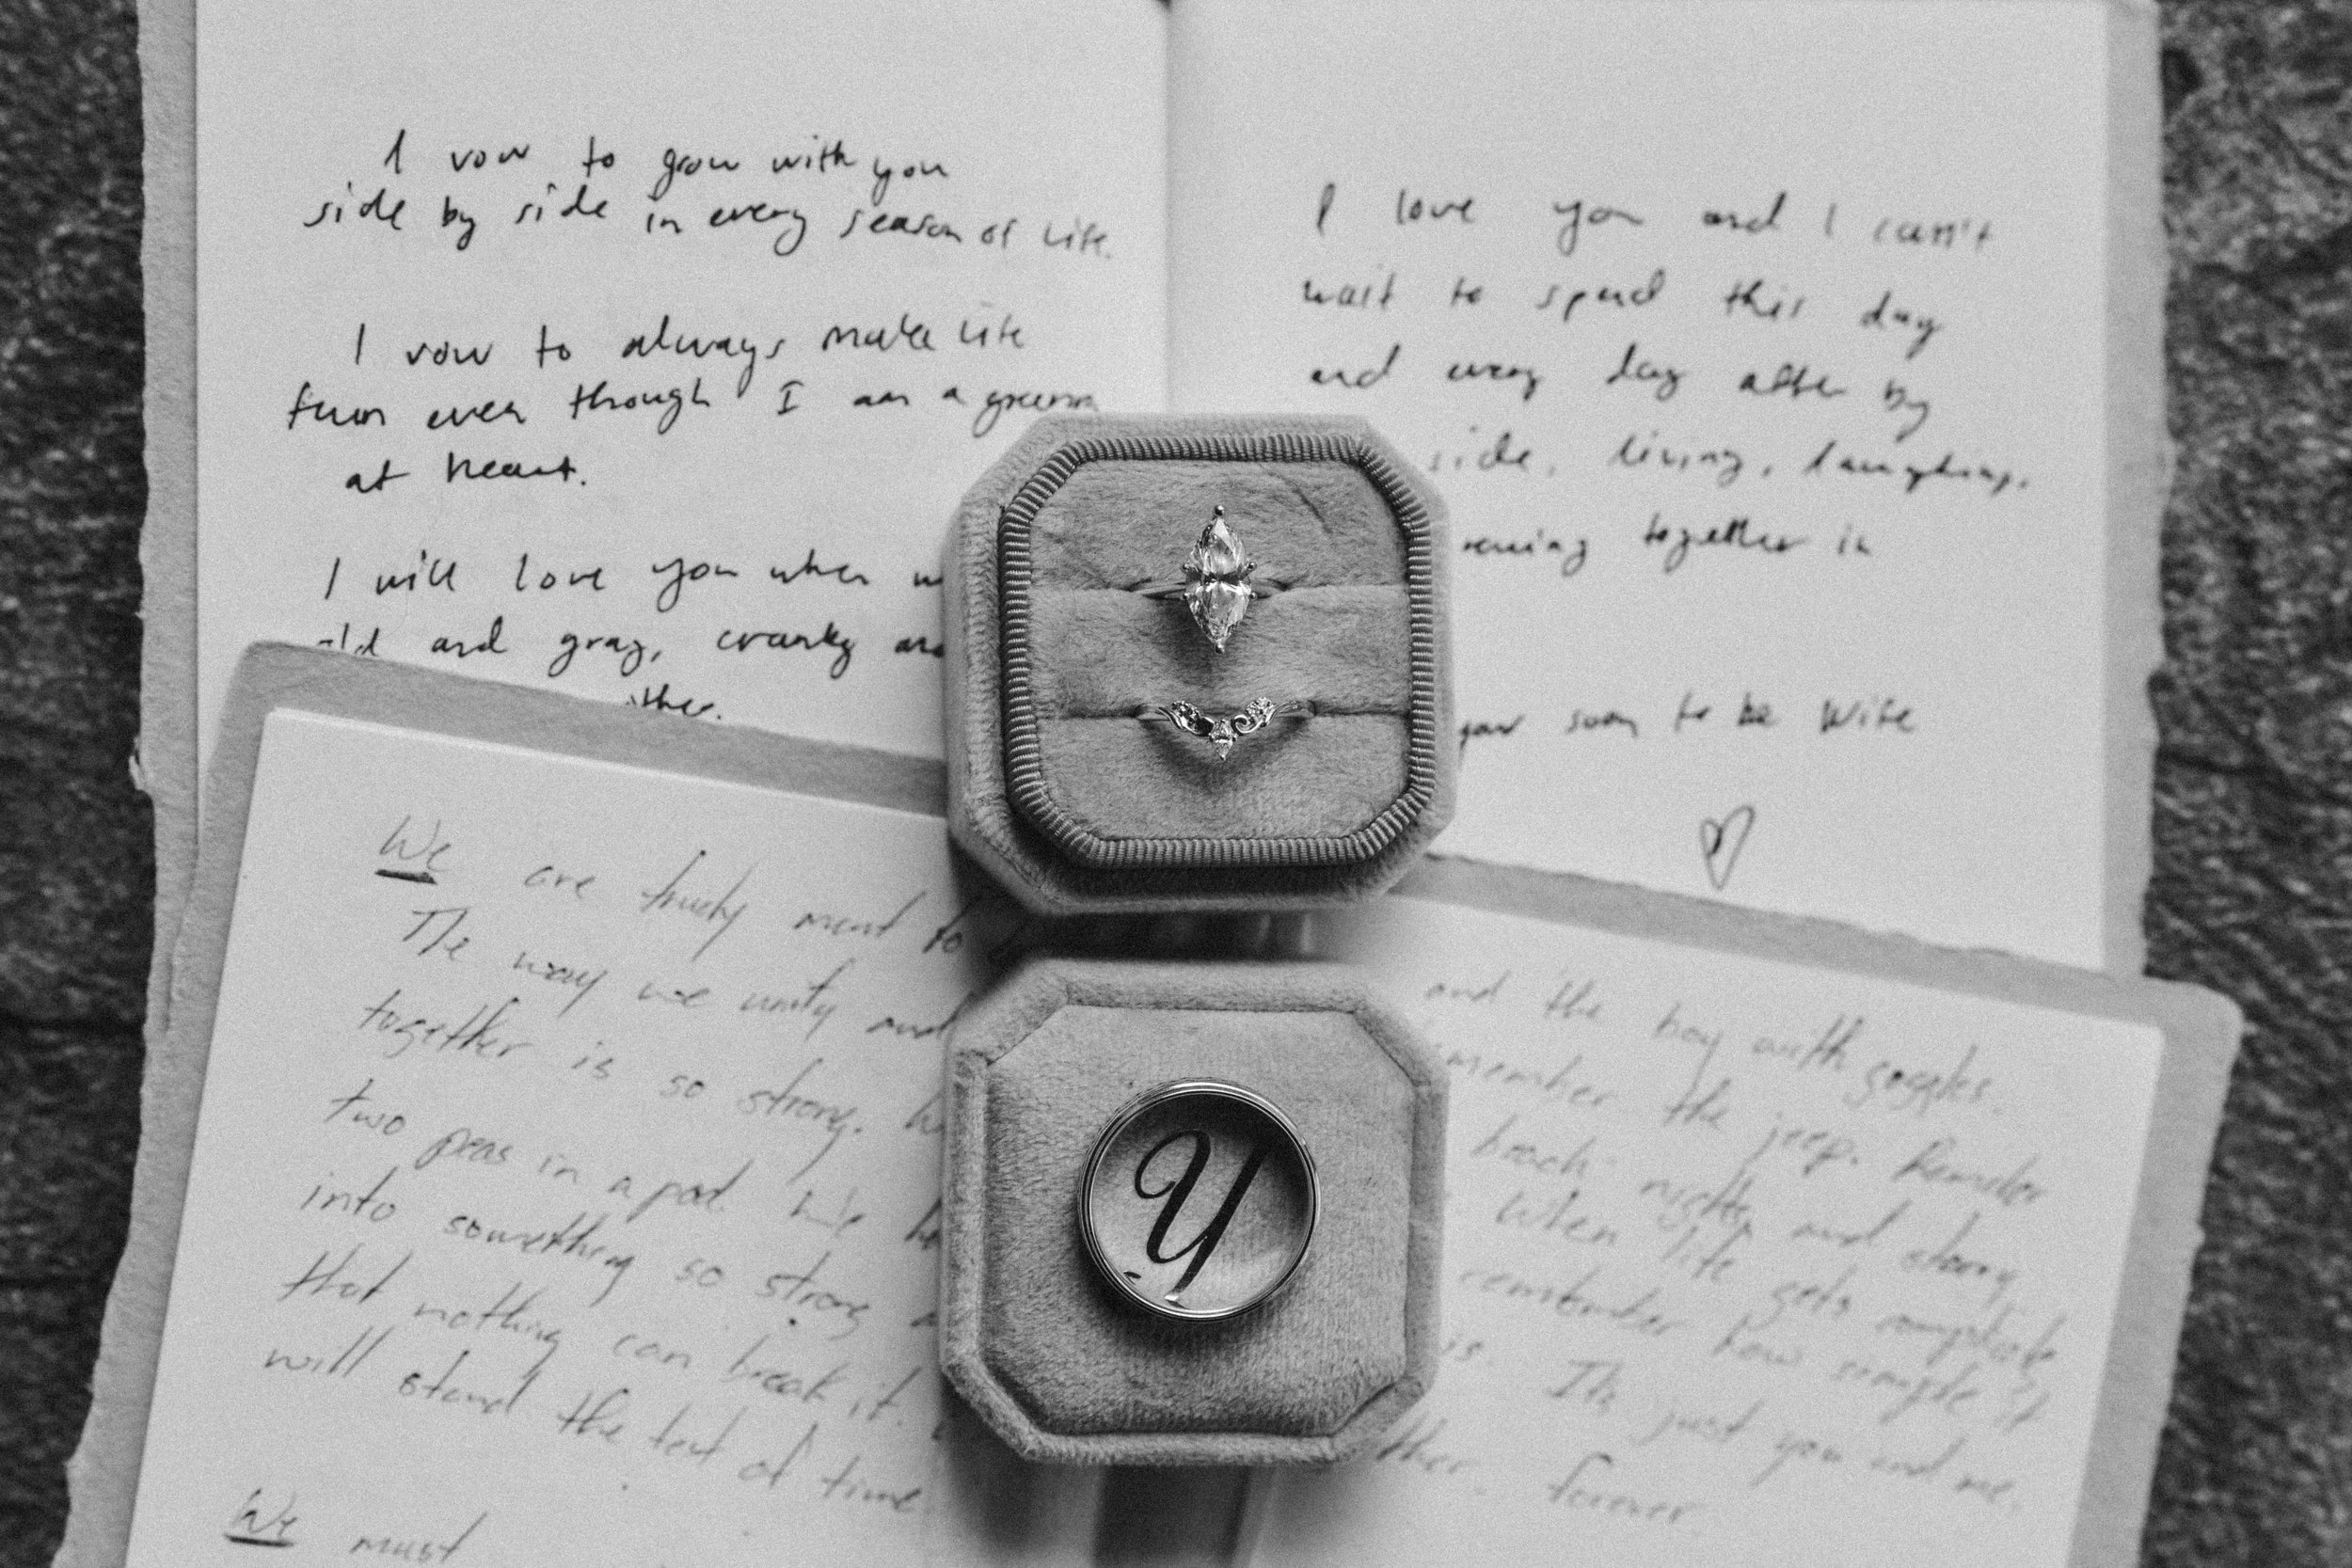 I vow to grow with you
side by side in every season of life.
I vow to always make life
fun even though I am a
at heart.
I will love you when
old and gray, cranky
I love you and I can't
wait to spend this day
and every day after by
side, living, laughing,
together in
your soon to be Wife
We are truely meant to
The way we unify and
together is so strong.
two peas in a pod. We
into something so strong
that nothing can break it.
will stand the test of time.
We must
and the boy with goggles.
the jeep. Remember
beach nights and starry
When life gets
remember how simple it
is. It's just you and me.
forever.
Y